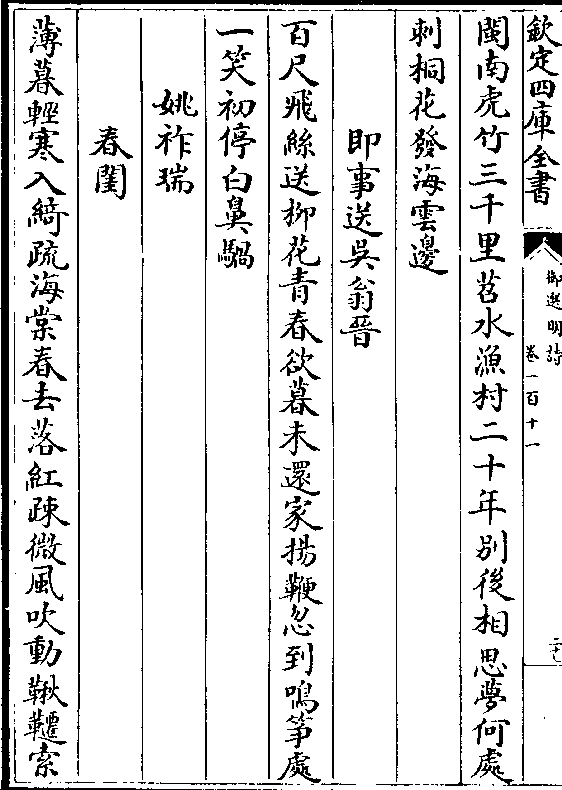 欽定四庫全書
御選明詩
卷一百十一
閩南虎竹三千里苕水漁村二十年別後相思夢何處
刺桐花發海雲邊
即事送吳翁晉
百尺飛絲送柳花青春欲暮未還家揚鞭忽到鳴箏處
一笑初停白鼻騧
姚祚瑞
春閨
薄暮輕寒入綺疏海棠春去落紅疎微風吹動鞦韆索